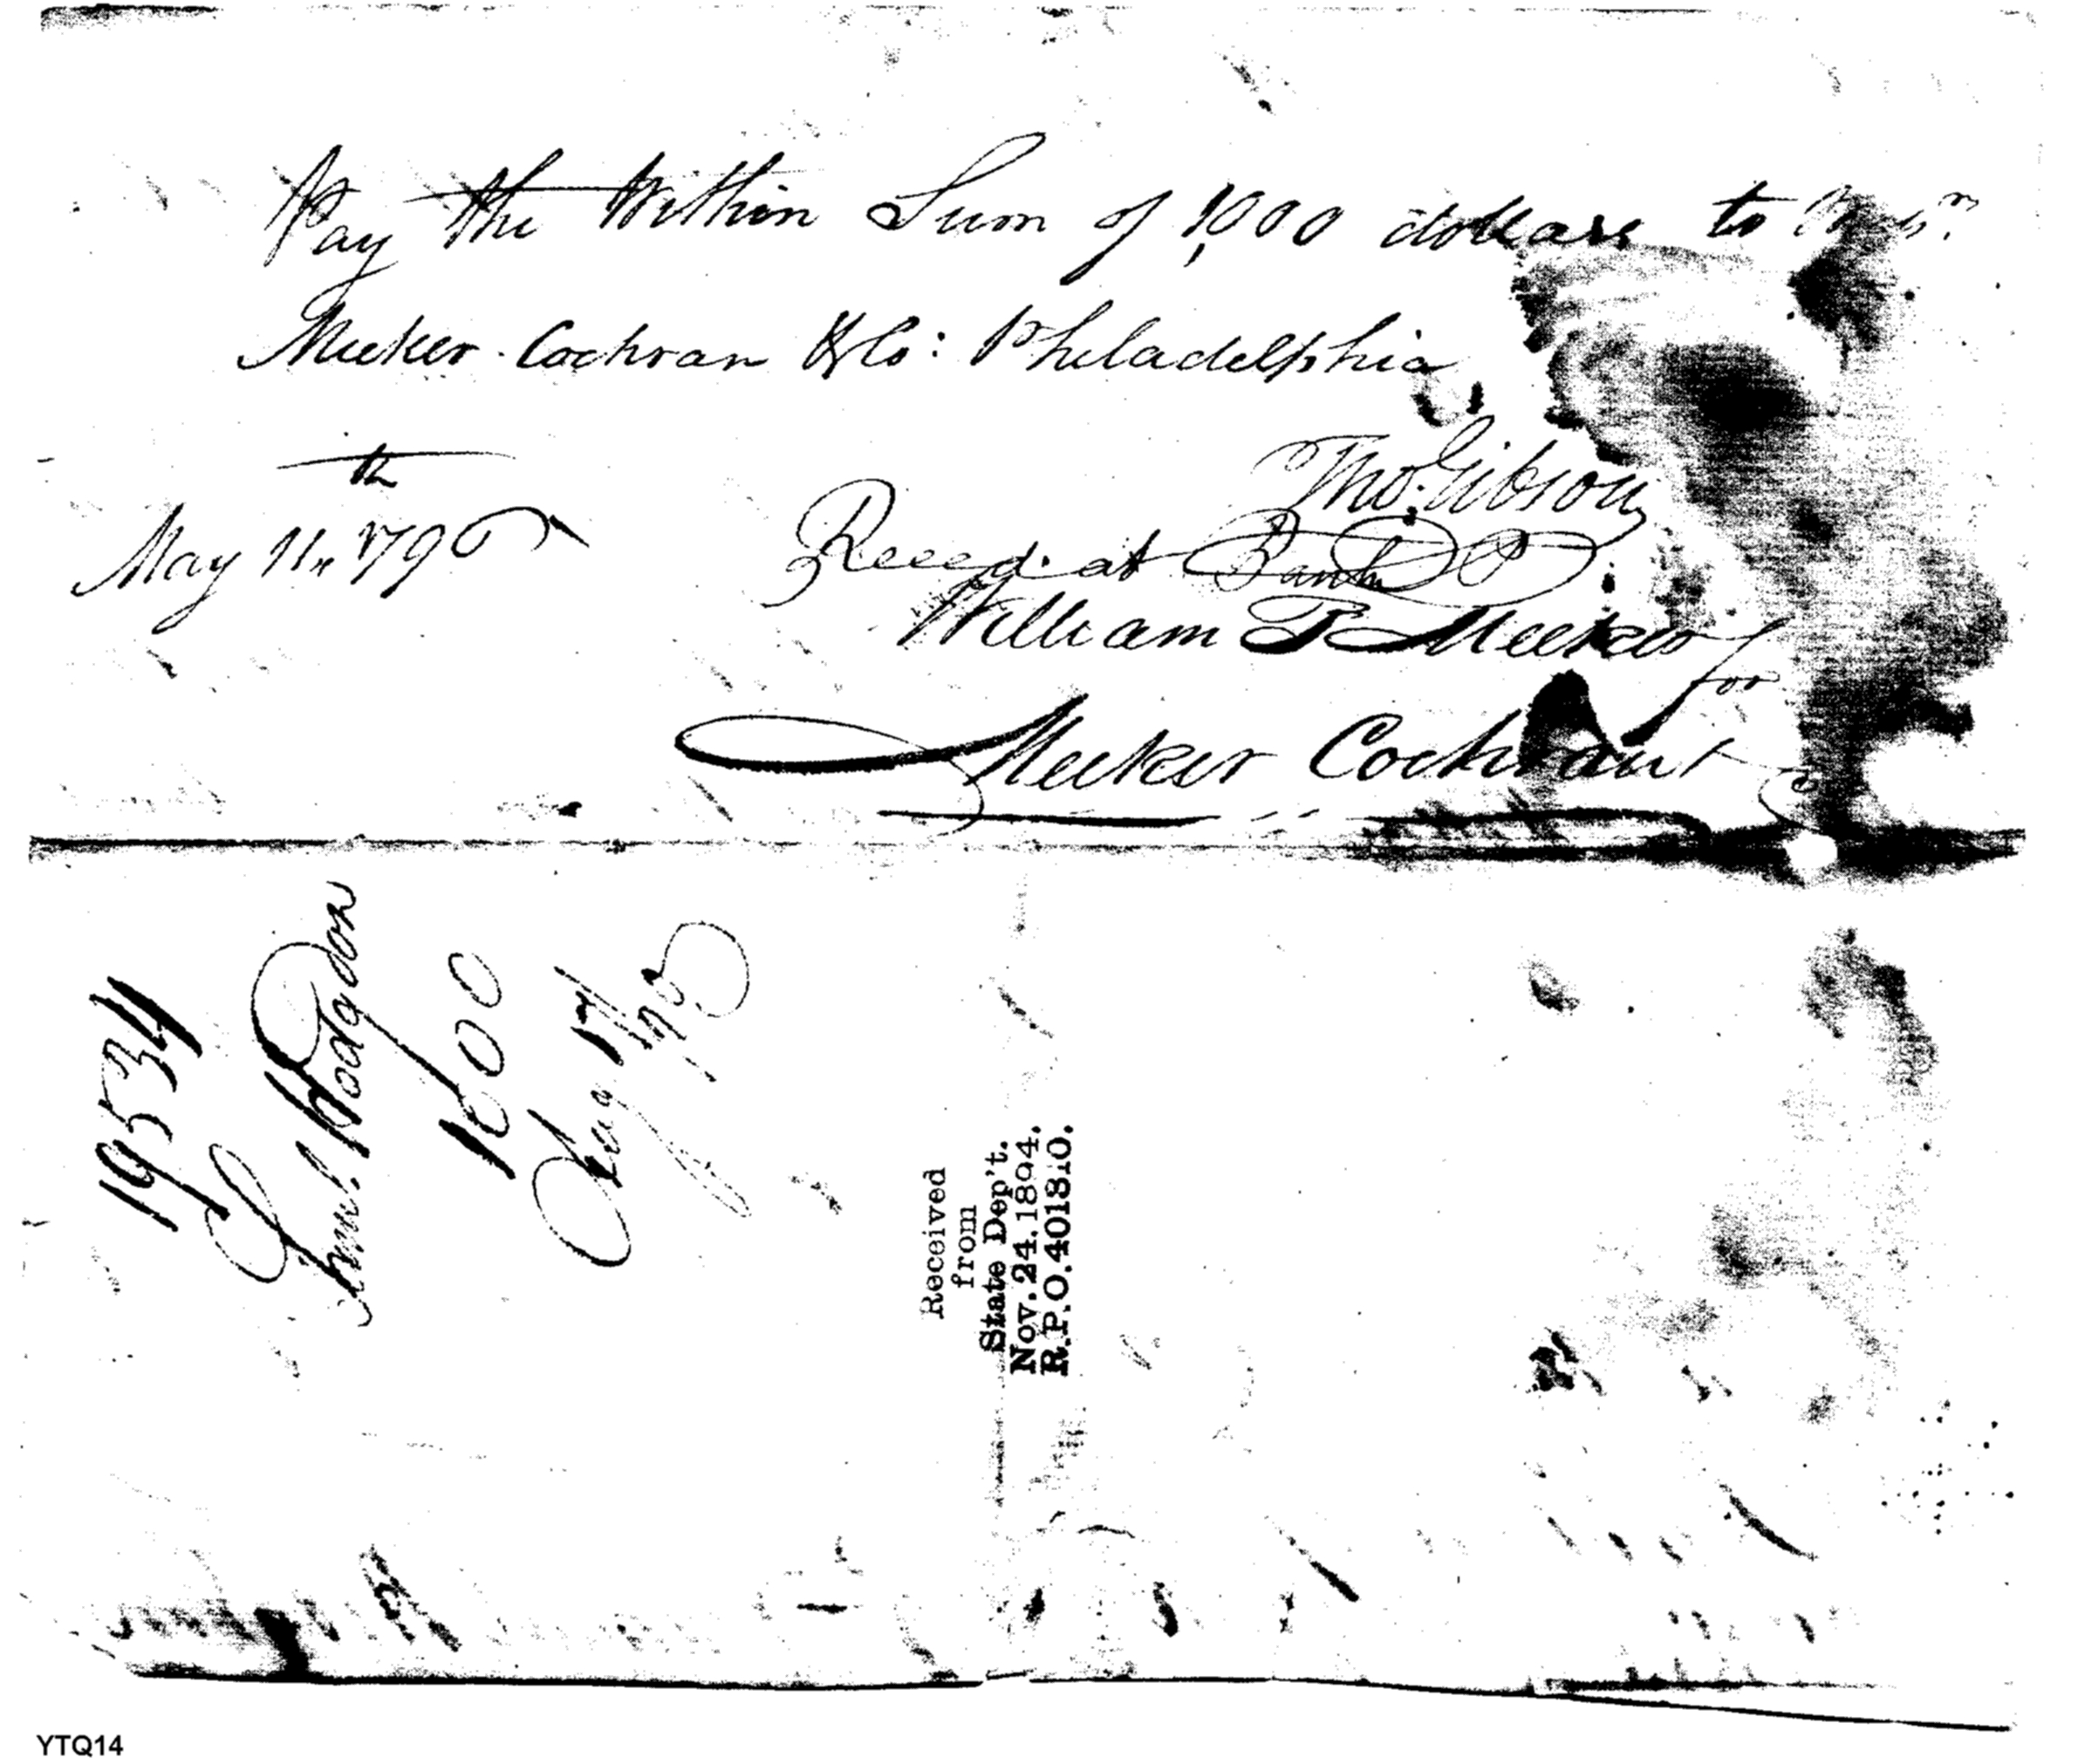 Pay the Within Sum of 1000 dollars to Messrs.
Meeker Cochran & Co: Philadelphia
Tho. Gibson
May 11th 1796
Recd. at Bank
William P Meeker for
Meeker Cochran &
19534
Saml. Hodgdon
1000
Received
from
State Dep't.
Nov. 24. 1894.
R.P.O. 401310.
YTQ14